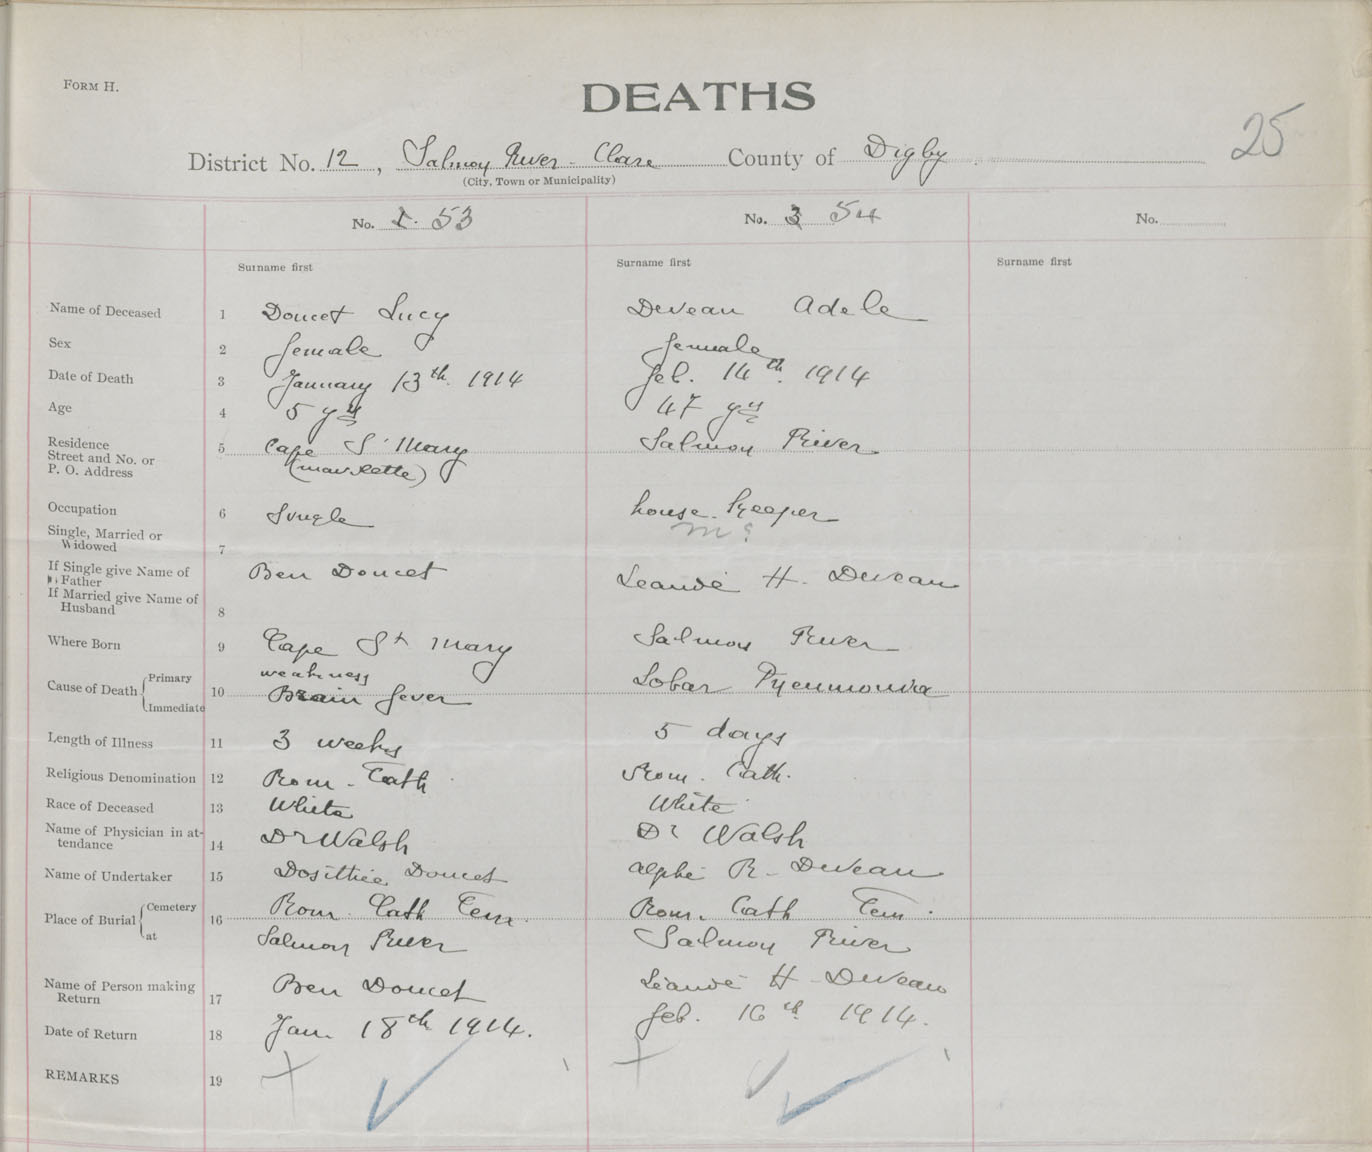 FORM H.
DEATHS
25
District No. 12, Salmon River - Clare County of Digby
(City, Town or Municipality)
No. 53
No. 3 54
No.
Surname first
Surname first
Surname first
Name of Deceased 1 Doucet Lucy Deveau Adele
Sex 2 female female
Date of Death 3 January 13th. 1914 Feb. 14th. 1914
Age 4 5 yrs 47 yrs
Residence
Street and No. or 5 Cape St Mary Salmon River
P. O. Address (mavilette)
Occupation 6 Single house-keeper
Single, Married or m?
Widowed 7
If Single give Name of Ben Doucet Leandé H. Deveau
Father
If Married give Name of
Husband 8
Where Born 9 Cape St Mary Salmon River
Cause of Death { Primary weakness Lobar Pneumonia
Immediate 10 Brain fever
Length of Illness 11 3 weeks 5 days
Religious Denomination 12 Rom. Cath Rom. Cath.
Race of Deceased 13 White White
Name of Physician in at-
tendance 14 Dr Walsh Dr Walsh
Name of Undertaker 15 Dosithée Doucet Alphé R. Deveau
Place of Burial { Cemetery 16 Rom. Cath Cem. Rom. Cath Cem.
at Salmon River Salmon River
Name of Person making
Return 17 Ben Doucet Leandé H. Deveau
Date of Return 18 Jan 18th 1914. Feb. 16th. 1914.
REMARKS 19